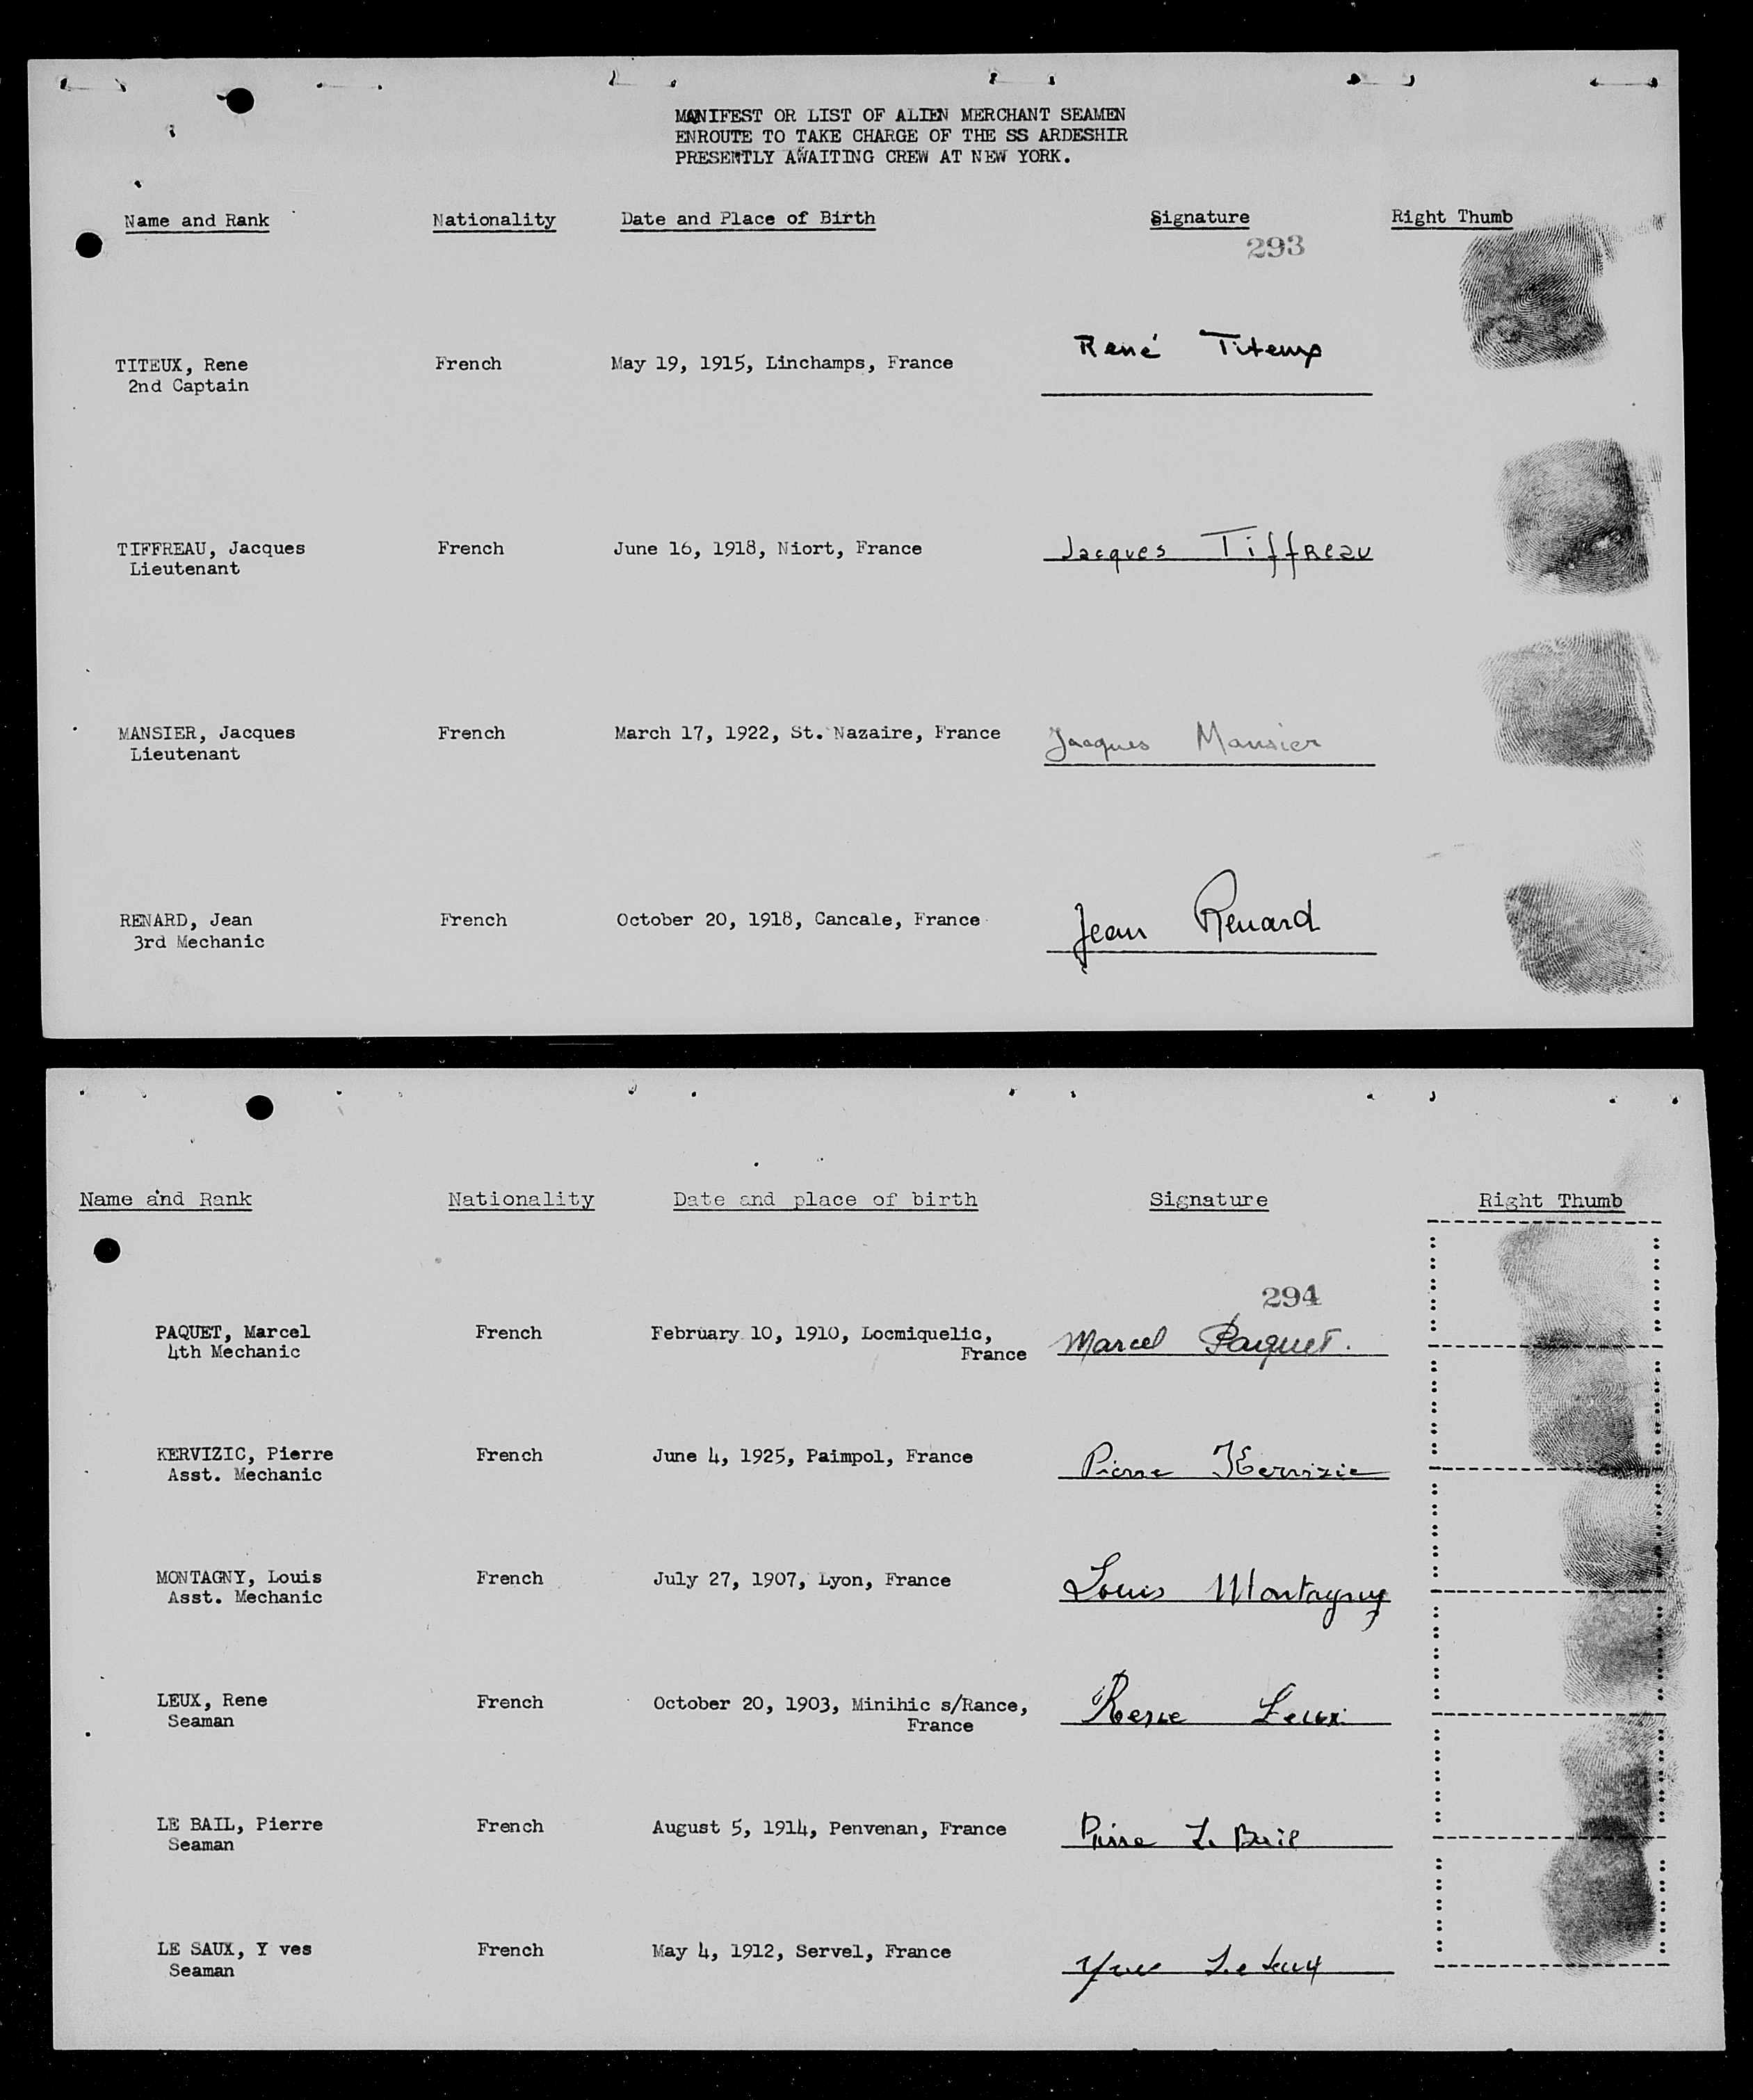 MANIFEST OR LIST OF ALIEN MERCHANT SEAMEN
ENROUTE TO TAKE CHARGE OF THE SS ARDESHIR
PRESENTLY AWAITING CREW AT NEW YORK.
Name and Rank Nationality Date and Place of Birth Signature Right Thumb
293
TITEUX, Rene French May 19, 1915, Linchamps, France René Titeux
2nd Captain
TIFFREAU, Jacques French June 16, 1918, Niort, France Jacques Tiffreau
Lieutenant
MANSIER, Jacques French March 17, 1922, St. Nazaire, France Jacques Mansier
Lieutenant
RENARD, Jean French October 20, 1918, Cancale, France Jean Renard
3rd Mechanic
Name and Rank Nationality Date and place of birth Signature Right Thumb
294
PAQUET, Marcel French February 10, 1910, Locmiquelic, Marcel Paquet.
4th Mechanic France
KERVIZIC, Pierre French June 4, 1925, Paimpol, France Pierre Kervizic
Asst. Mechanic
MONTAGNY, Louis French July 27, 1907, Lyon, France Louis Montagny
Asst. Mechanic
LEUX, Rene French October 20, 1903, Minihic s/Rance, Rene Leux
Seaman France
LE BAIL, Pierre French August 5, 1914, Penvenan, France Pierre Le Bail
Seaman
LE SAUX, Y ves French May 4, 1912, Servel, France Yves Le Saux
Seaman